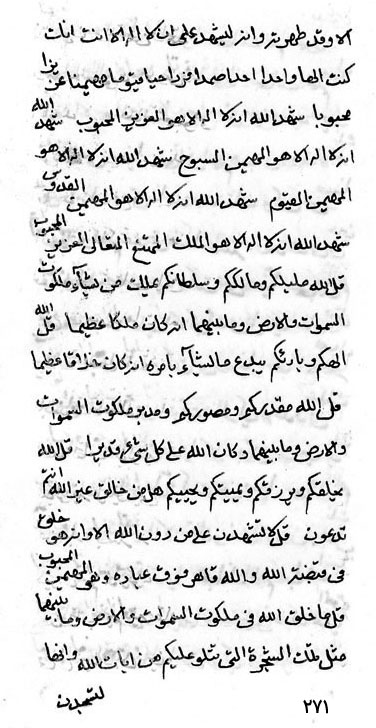 الا وقد ظهرت وانه ليشهد على ان لا اله الا انت انك
كنت الها واحدا احدا صمدا فردا حيا قيوما مهيمنا عزيزا
محبوبا شهد الله انه لا اله الا هو العزيز المحبوب شهد الله
انه لا اله الا هو المهيمن السبوح شهد الله انه لا اله الا هو
المهيمن القيوم شهد الله انه لا اله الا هو المهيمن القدوس
شهد الله انه لا اله الا هو الملك الممتنع المتعالي العزيز المحبوب
قل الله مليككم ومالككم وسلطانكم يملك من يشآء ملكوت
السموات والارض وما بينهما انه كان ملكا عظيما قل الله
الهكم وبارئكم يبدع ما يشآء بامره انه كان خلاقا عظيما
قل الله مقدركم ومصوركم ومدبر ملكوت السموات
والارض وما بينهما وكان الله على كل شئ قديرا قل الله
يخلقكم ويرزقكم ويميتكم ويحييكم هل من خالق غير الله انتم
تدعون قل لا تشهدن على من دون الله الا وانه هو خلق
فى قبضة الله والله قاهر فوق عباده وهو المهيمن المحبوب
قل ما خلق الله فى ملكوت السموات والارض وما بينهما
مثل تلك الشجرة التى تتلو عليكم من ايات الله وانها
لتشهدن
٢٧١